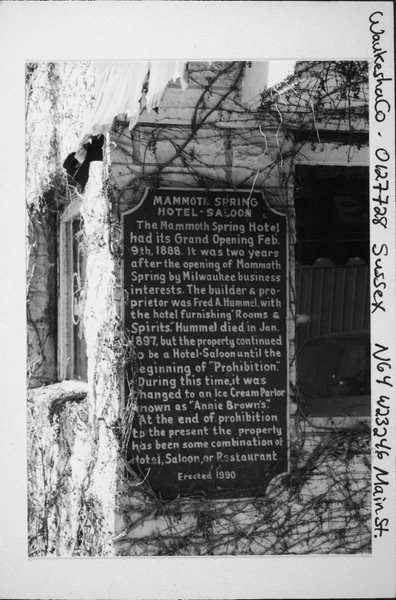 MAMMOTH SPRING
HOTEL-SALOON
The Mammoth Spring Hotel
had its Grand Opening Feb.
9th, 1888. It was two years
after the opening of Mammoth
Spring by Milwaukee business
interests. The builder & pro-
prietor was Fred A. Hummel, with
the hotel furnishing "Rooms &
Spirits." Hummel died in Jan.
1897, but the property continued
to be a Hotel-Saloon until the
beginning of "Prohibition."
During this time, it was
changed to an Ice Cream Parlor
known as "Annie Brown's."
At the end of prohibition
to the present the property
has been some combination of
Hotel, Saloon, or Restaurant.
Erected 1990
Waukesha Co • 0127728 Sussex N64 W23246 Main St.